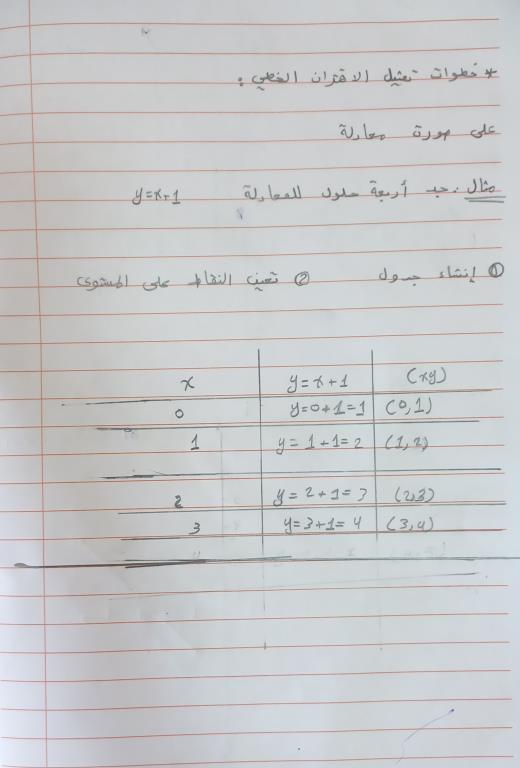 * خطوات تمثيل الاقتران الخطي :
على صورة معادلة
مثال . جد أربعة حلول للمعادلة y=x+1
① إنشاء جدول ② تعيين النقاط على المستوى
x y=x+1 (xy)
0 y=0+1=1 (0,1)
1 y=1+1=2 (1,2)
2 y=2+1=3 (2,3)
3 y=3+1=4 (3,4)